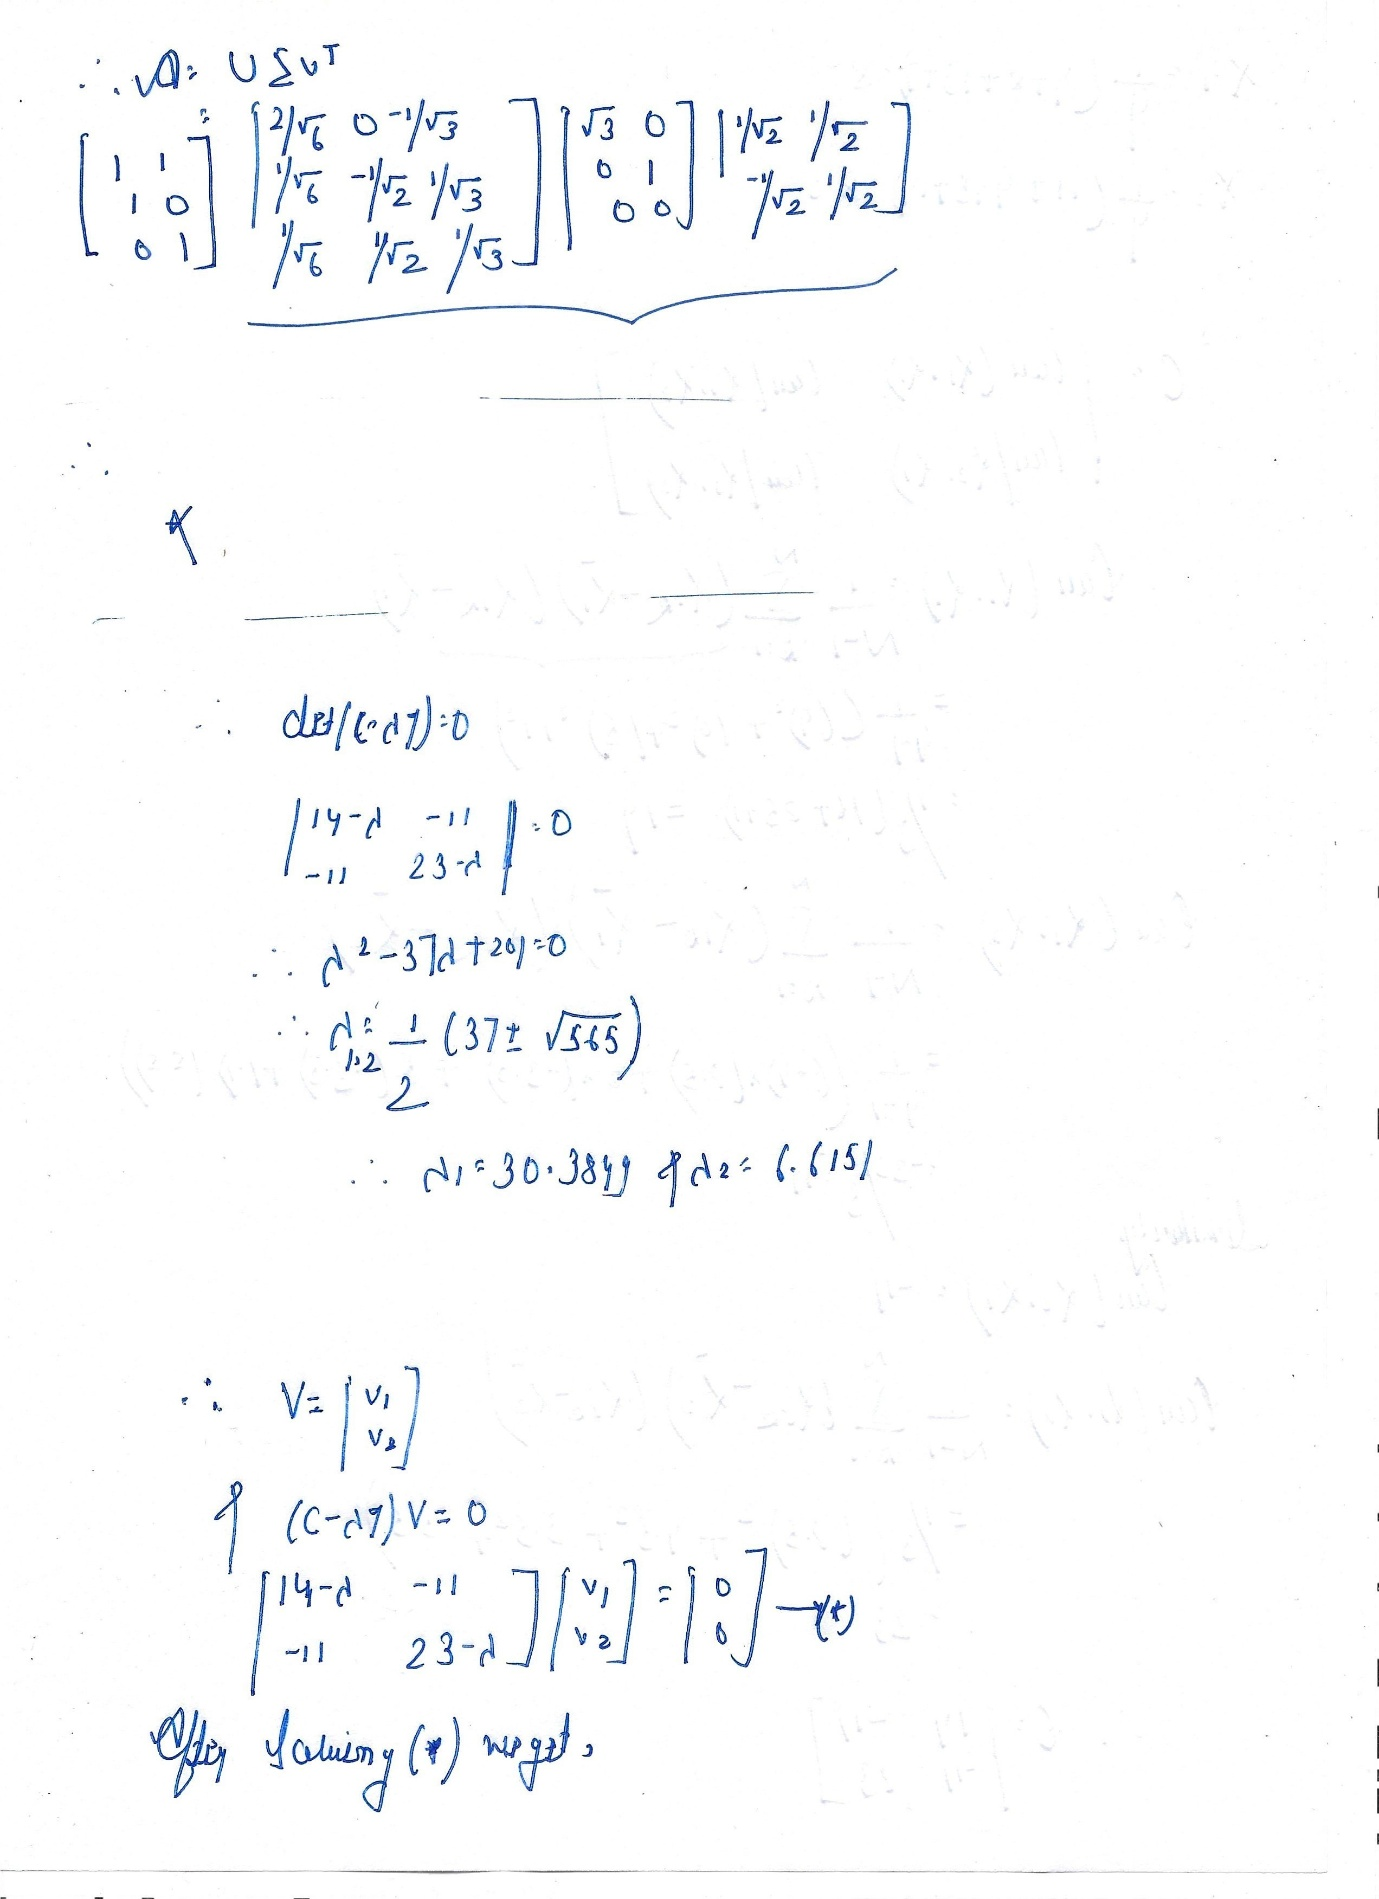 ∴ A = U Σ V^T
[1 1; 1 0; 0 1] = [2/√6 0 -1/√3; 1/√6 -1/√2 1/√3; 1/√6 1/√2 1/√3] [√3 0; 0 1; 0 0] [1/√2 1/√2; -1/√2 1/√2]
∴
det(C-λI)=0
|14-λ -11; -11 23-λ| = 0
∴ λ²-37λ+201=0
∴ λ1,2 = 1/2 (37 ± √565)
∴ λ1 = 30.3849 & λ2 = 6.6151
∴ V = [v1; v2]
& (C-λI) V = 0
[14-λ -11; -11 23-λ] [v1; v2] = [0; 0] → (*)
After Solving (*) we get,